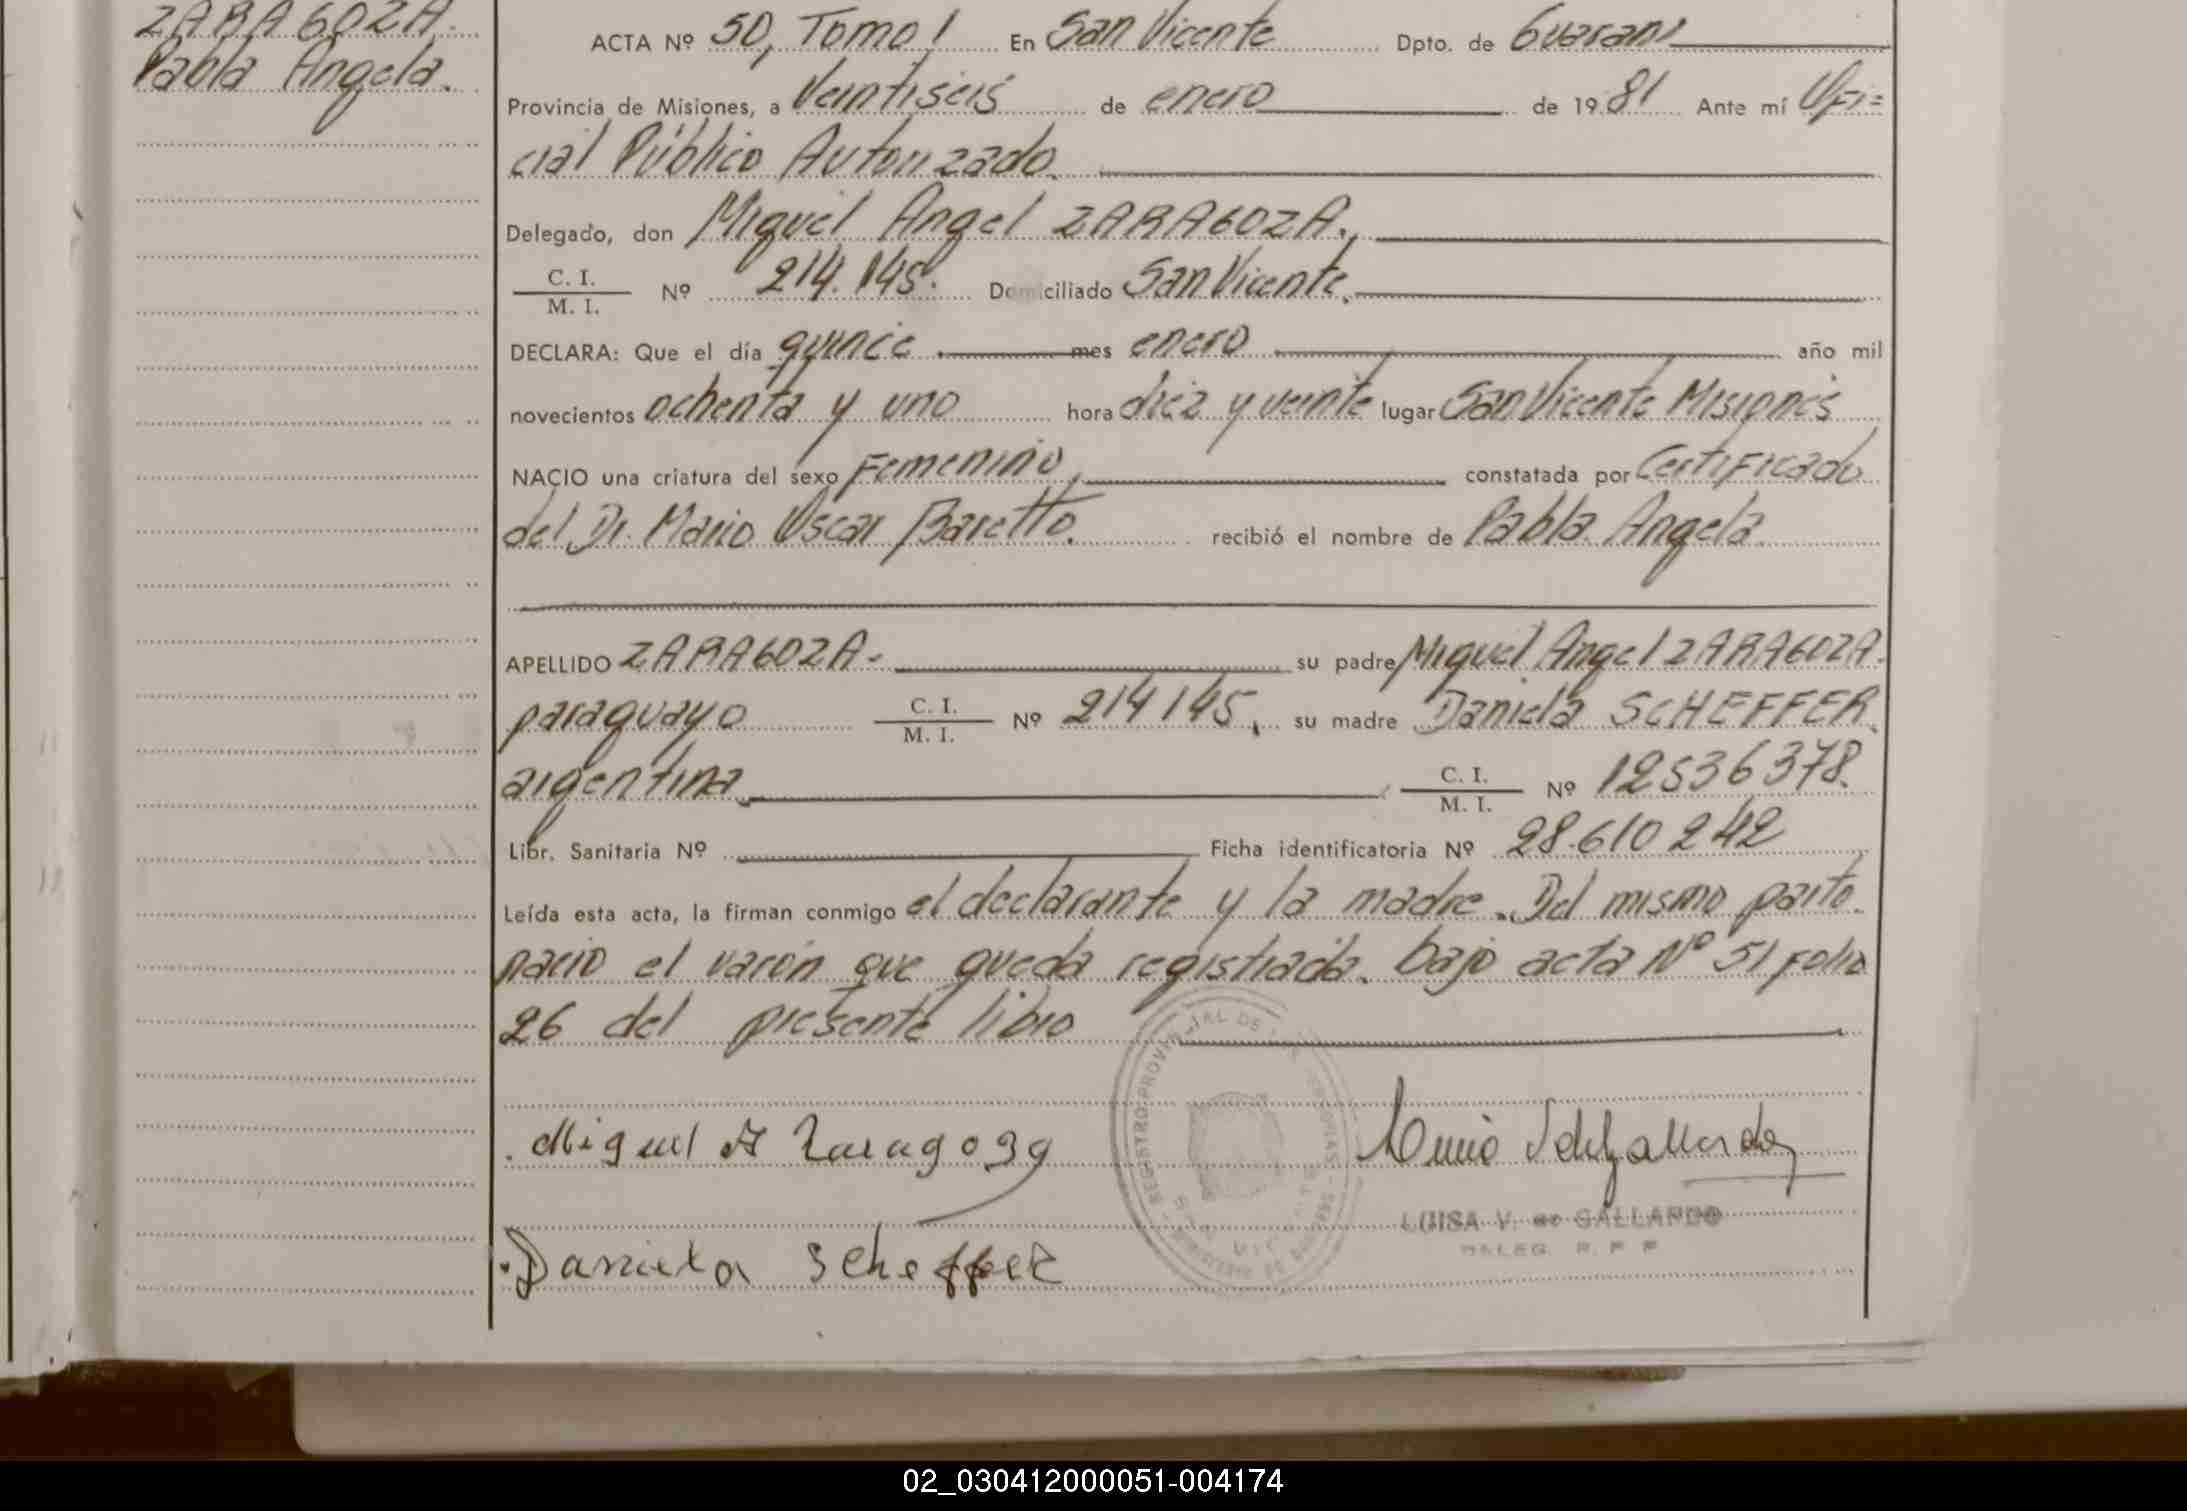 ZARAGOZA.
Pabla Angela.
ACTA Nº 50, Tomo I En San Vicente Dpto. de Guaraní
Provincia de Misiones, a Veintiseis de enero de 1981 Ante mí Ofi=
cial Público Autorizado.
Delegado, don Miguel Angel ZARAGOZA.
C. I.
M. I. Nº 214.145. Domiciliado San Vicente.
DECLARA: Que el día quince mes enero año mil
novecientos ochenta y uno hora diez y veinte lugar San Vicente Misiones
NACIO una criatura del sexo Femenino, constatada por Certificado
del Dr. Mario Oscar Baretto. recibió el nombre de Pabla Angela.
APELLIDO ZARAGOZA- su padre Miguel Angel ZARAGOZA.
paraguayo C. I.
M. I. Nº 214145, su madre Daniela SCHEFFER,
argentina C. I.
M. I. Nº 12536378.
Libr. Sanitaria Nº Ficha identificatoria Nº 28.610242
Leída esta acta, la firman conmigo el declarante y la madre. Del mismo parto.
nació el varón que queda registrada. bajo acta Nº 51 folio
26 del presente libro
Miguel A Zaragoza
LUISA V. de GALLARDO
DELEG. R. P. P.
Daniela Scheffer
02_030412000051-004174